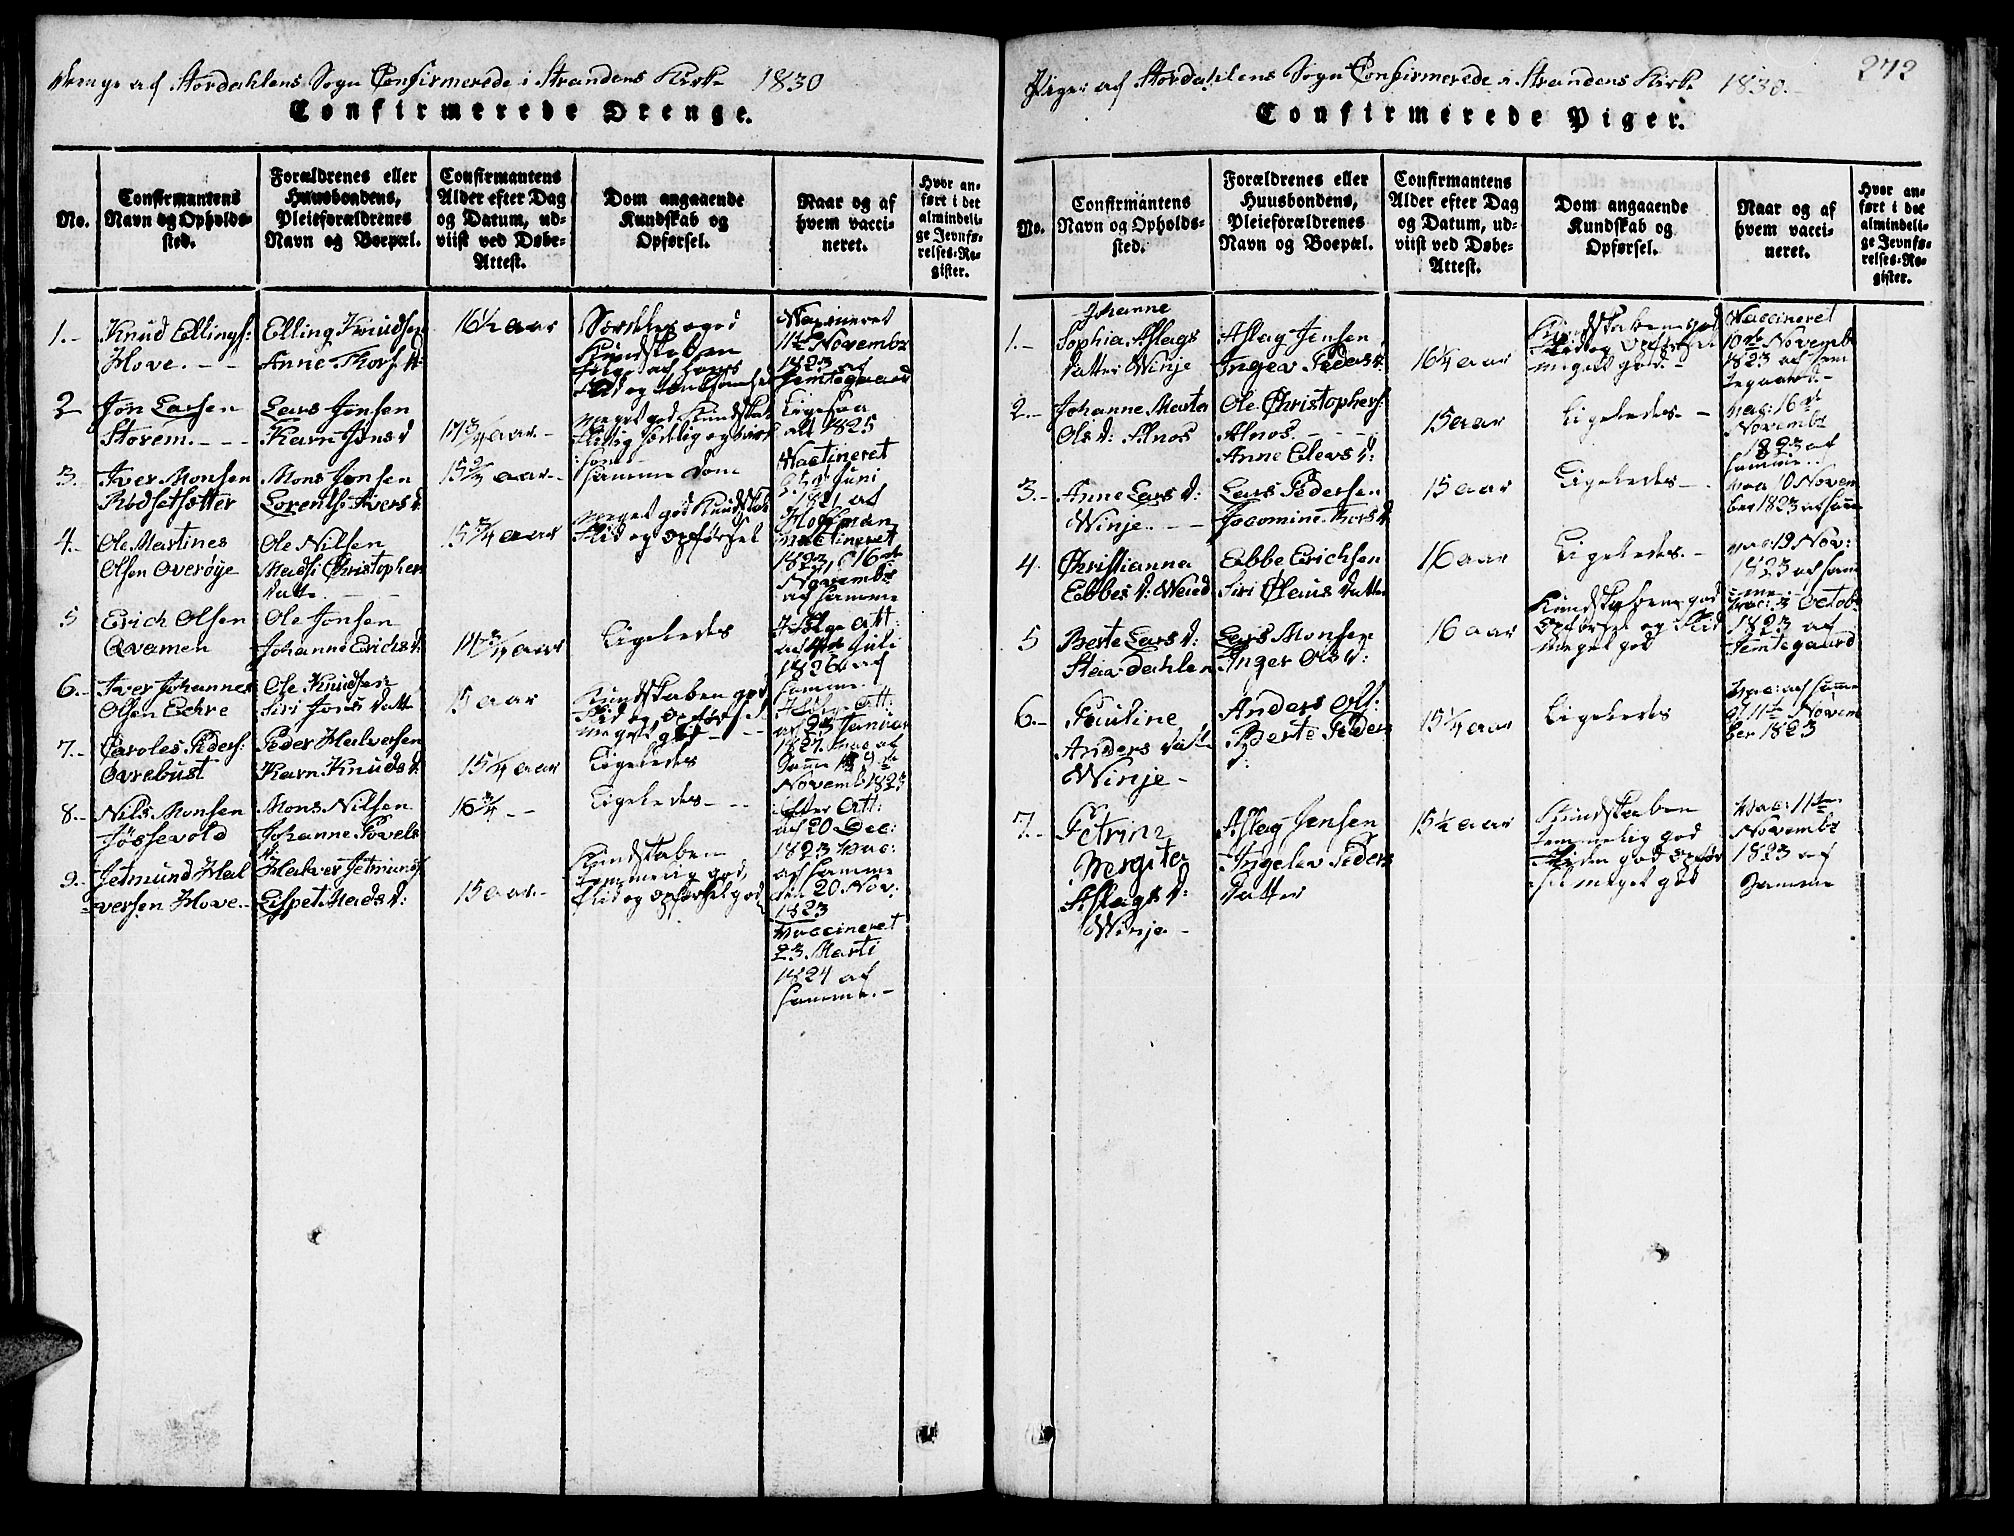 Drenge af Stordahlens Sogn Confirmerede i Strandens Kirke 1830
Confirmerede Drenge.
No.
Confirmantens
Navn og Opholds-
sted.
Forældrenes eller
Huusbondens,
Pleieforældrenes
Navn og Boepæl.
Confirmantens
Alder efter Dag
og Datum, ud-
viist ved Døbe-
Attest.
Dom angaaende
Kundskab og
Opførsel.
Naar og af
hvem vacci-
neret.
Hvor an-
ført i det
almindeli-
ge Jevnfø-
relses-Re-
gister.
1.-
Knud Ellings:
Hove. - -
Elling Knudsen
Anne Thors D:
16½ aar
god
Kundskaben
Vaccineret
11te Novembr
1823 af
Jemtegaard
2
Jon Larsen
Storem. - - -
Lars Jonsen
Karn Jons d
17¾ aar. -
meget god Kundskab
Ligesaa
att 1825
3.
Iver Monsen
Rødsetsætter
Mons Jonsen
Lorentse Ivers d:
15¾ aar. -
samme Dom
Vactineret
Juni
1821 af
Hoffman
4.-
Ole Martines
Olsen Overøye
Ole Nilsen
Madsi Christophers
datte
15¾ aar
meget god Kundskab
Flid og opførsel
Vactineret
1823 16de
Novembr
af samme
5
Erich Olsen
Qvamen
Ole Jonsen
Johanne Erichs d:
17¾ aar
Ligeledes
Ifølge Att:
Juli
1826 af
samme
6.-
Iver Johannes
Olsen Echre
Ole Knudsen
Siri Jons datt
15 aar
Kundskaben god
Flid og opførsel
meget god - -
Ifølge Att:
af 23 Januar
1827 Vac: af
Samme 19de
Novemb: 1823
7.-
Caroles Peders:
Øvrebust
Peder Halversen
Karn Knuds d
15¼ aar
Ligeledes
8.-
Nils Monsen
Jøssevold
Mons Nilsen
Johanne Povels
d:
16¾ - -
Ligeledes - - -
Efter Att:
af 20 Dec:
1823 Vac:
af samme
den 20 Nov:
1823
9.-
Jetmund Hal
versen Hove.-
Halver Jetmunds
Lispet Mads d:
15 aar. -
Kundskaben
temmelig god,
Flid og opførsel god
Vaccineret
23 Marti
1824 af
samme. -
272
Piger af Stordahlens Sogn Confirmerede i Strandens Kirke 1830.-
Confirmerede Piger.
No.
Confirmantens
Navn og Opholds-
sted.
Forældrenes eller
Huusbondens,
Pleieforældrenes
Navn og Boepæl.
Confirmantens
Alder efter Dag
og Datum, ud-
viist ved Døbe-
Attest.
Dom angaaende
Kundskab og
Opførsel.
Naar og af
hvem vacci-
neret.
Hvor an-
ført i det
almindeli-
ge Jevnfø-
relses-Re-
gister.
1.-
Johanne
Sophia Aslags
datter Winje
Aslag Jensen
Ingev Peders d:
16¼ aar
Kundskaben god
Flid og Opførsel
meget god. -
Vaccineret
10de Novemb
1823 af Jem
tegaard. -
2.-
Johanne Marta
Ols d: Alnos
Ole Christophers
Alnos. - - -
Anne Elevs d:
15 aar
Ligeledes - -
Vac: 16de
Novembr
1823 af
samme. -
3.-
Anne Lars d:
Winje. - - -
Lars Pedersen
Jocomine Thors d
15 aar
Ligeledes - -
Vac 10 Novem
ber 1823 af samme
4.
Christianna
Ebbes d: Weied
Ebbe Erichsen
Siri Olaus datte
16 aar
Ligeledes. -
Vac: 19 Nov:
1823 af sam
me. -
5
Berte Lars d:
Stav dahlen
Lars Monsen
Inger Ols d:
16 aar
Kundskaben god
opførsel og Flid
meget god
Vac: 3 Octob:
1823 af
Jemtegaard
6.-
Pauline
Anders datte
Winje -
Anders Ols:
Berte Peders
d:
15¼ aar
Ligeledes
Vac: af samme
d: 11te Novem
ber 1823
7.-
Petrine
Bergita
Aslags d:
Winje -
Aslag Jensen
Ingelev Peders
datter
15½ aar
Kundskaben
temmelig god
Fliden god opfør
sel meget god
Vac: 11te
Novembr
1823 af
Samme